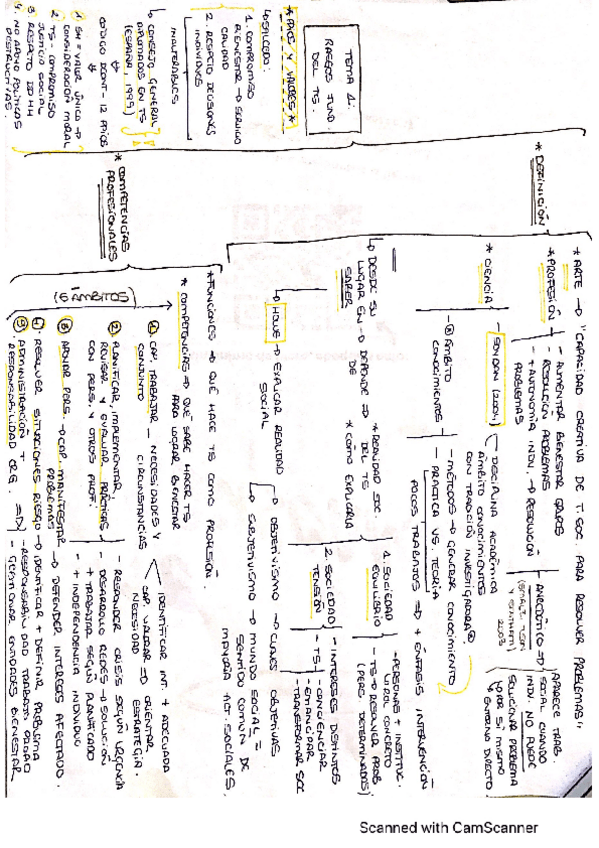 TEMA 1:
RASGOS FUND.
DEL TS.
* PPIOS Y VALORES *
↳ SALCEDO:
1. COMPROMISO
BIENESTAR → SERVICIO
CALIDAD
2. RESPETO DECISIONES
INDIVIDUOS
INALTERABLES
↳ CONSEJO GENERAL
DIPLOMADOS EN TS
(ESPAÑA, 1999)
CÓDIGO DEONT - 12 PPIOS
1 SH = VALOR ÚNICO →
CONSIDERACIÓN MORAL
2 TS - COMPROMISO
JUSTICIA SOCIAL
3 RESPETO DDHH
4. NO APOYO POLÍTICAS
DESTRUCTIVAS.
* DEFINICIÓN
* ARTE → "CAPACIDAD CREATIVA DE T. SOC. PARA RESOLVER PROBLEMAS"
* PROFESIÓN
- AUMENTAR BIENESTAR GRUPOS
- RESOLUCIÓN PROBLEMAS
- AUTONOMÍA INDV. → RESOLUCIÓN
PROBLEMAS
ANECDÓTICO →
2003
APARECE TRAB.
SOCIAL CUANDO
INDV. NO PUEDE
SOLUCIONAR PROBLEMA
POR SÍ MISMO
* CIENCIA
- SONDAN (2004)
DISCIPLINA ACADÉMICA
ÁMBITO CONOCIMIENTOS
CON TRADICIÓN INVESTIGADORA
- ÁMBITO
CONOCIMIENTOS
- MÉTODOS → GENERAR CONOCIMIENTO
- PRÁCTICA VS. TEORÍA
POCOS TRABAJOS → + ÉNFASIS INTERVENCIÓN
↳ DESDE SU
LUGAR EN → DEPENDE → DE
SABER
* REALIDAD SOC.
DEL TS
* CÓMO EXPLICARLA
1. SOCIEDAD
EQUILIBRIO
- PERSONAS + INSTITUC.
UN ROL CONCRETO
- TS → RESOLVER PROB
(PERS. DETERMINADOS)
2. SOCIEDAD
TENSIÓN
- INTERESES DISTINTOS
- TS
- CONCIENCIAR
- EMANCIPAR
- TRANSFORMAR SOC
↳ HOWE → EXPLICAR REALIDAD
SOCIAL
↳ OBJETIVISMO → CLAVES OBJETIVAS
↳ SUBJETIVISMO → MUNDO SOCIAL =
SENTIDO COMÚN DE
MAYORÍA ACT. SOCIALES
* COMPETENCIAS
PROFESIONALES
* FUNCIONES → QUÉ HACE TS COMO PROFESIÓN.
* COMPETENCIAS → QUÉ SABE HACER TS
PARA LOGRAR BIENESTAR
(6 ÁMBITOS)
1 CAP. TRABAJAR
CONJUNTO
- NECESIDADES Y
CIRCUNSTANCIAS
IDENTIFICAR INT. + ADECUADA
CAP. VALORAR → ORIENTAR
NECESIDAD ESTRATEGIA.
2 PLANIFICAR, IMPLEMENTAR,
REVISAR Y EVALUAR PRÁCTICAS
CON PERS. Y OTROS PROF.
- RESPONDER CRISIS SEGÚN URGENCIA
- DESARROLLO REDES → SOLUCIÓN
+ TRABAJAR SEGÚN PLANIFICADO
+ INDEPENDENCIA INDIVIDUO
3 APOYAR PERS. → CAP. MANIFESTAR
PROBLEMAS → DEFENDER INTERESES AFECTADO.
4. RESOLVER SITUACIONES RIESGO → IDENTIFICAR + DEFINIR PROBLEMA
5 ADMINISTRACIÓN +
RESPONSABILIDAD ORG.
- RESPONSABILIDAD TRABAJO PROPIO
- GESTIONAR ENTIDADES BIENESTAR
Scanned with CamScanner